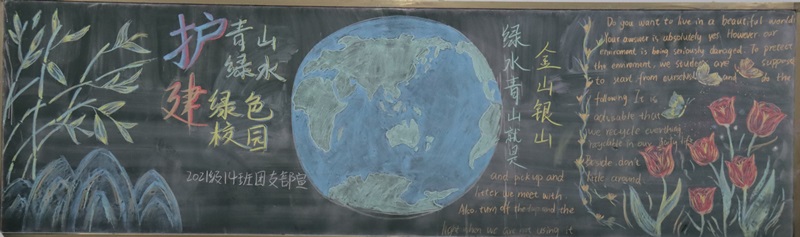 护青山绿水
建绿色校园
2021级14班团支部宣
绿水青山就是
金山银山
Do you want to live in a beautiful world
Your answer is absolutely yes. However our
enviroment is being seriously damaged. To protect
the enviroment, we students are suppose
to start from ourselves and do the
following It is
advisable that
we recycle everything
in our daily life
Beside, don't
litter around
and pickup and
litter we meet with
Also turn off the tap and the
light when we are not using it